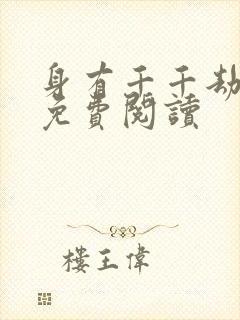 身有千千劫
免費閱讀
樓王偉